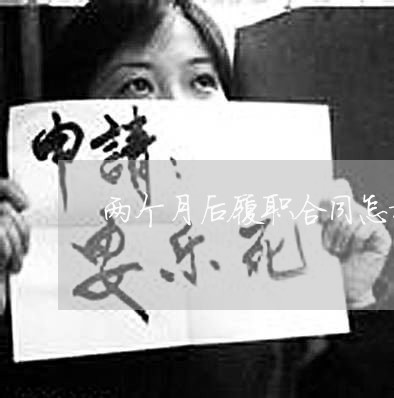 申請：
两个月后履职合同怎
安乐死